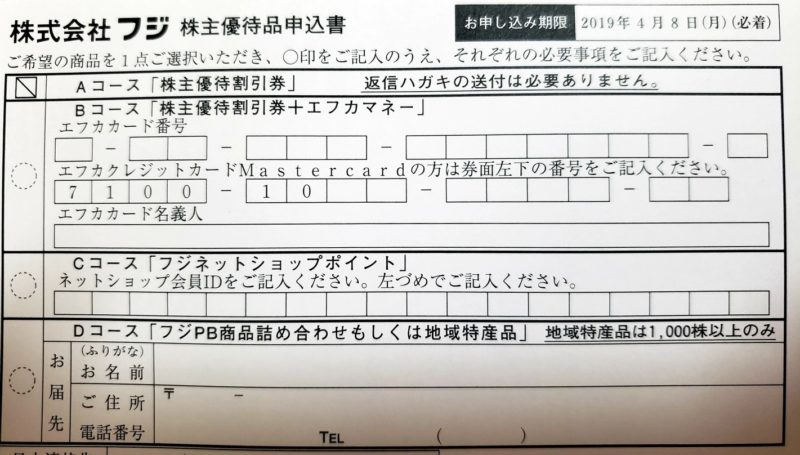 株式会社フジ 株主優待品申込書 お申し込み期限 2019年4月8日(月)(必着)
ご希望の商品を1点ご選択いただき、○印をご記入のうえ、それぞれの必要事項をご記入ください。
Aコース「株主優待割引券」 返信ハガキの送付は必要ありません。
Bコース「株主優待割引券＋エフカマネー」
エフカカード番号
－ － － －
エフカクレジットカードMastercardの方は券面左下の番号をご記入ください。
7100－10 － －
エフカカード名義人
Cコース「フジネットショップポイント」
ネットショップ会員IDをご記入ください。左づめでご記入ください。
Dコース「フジPB商品詰め合わせもしくは地域特産品」 地域特産品は1,000株以上のみ
お届先
(ふりがな)
お名前
ご住所 〒 －
電話番号 TEL ( )